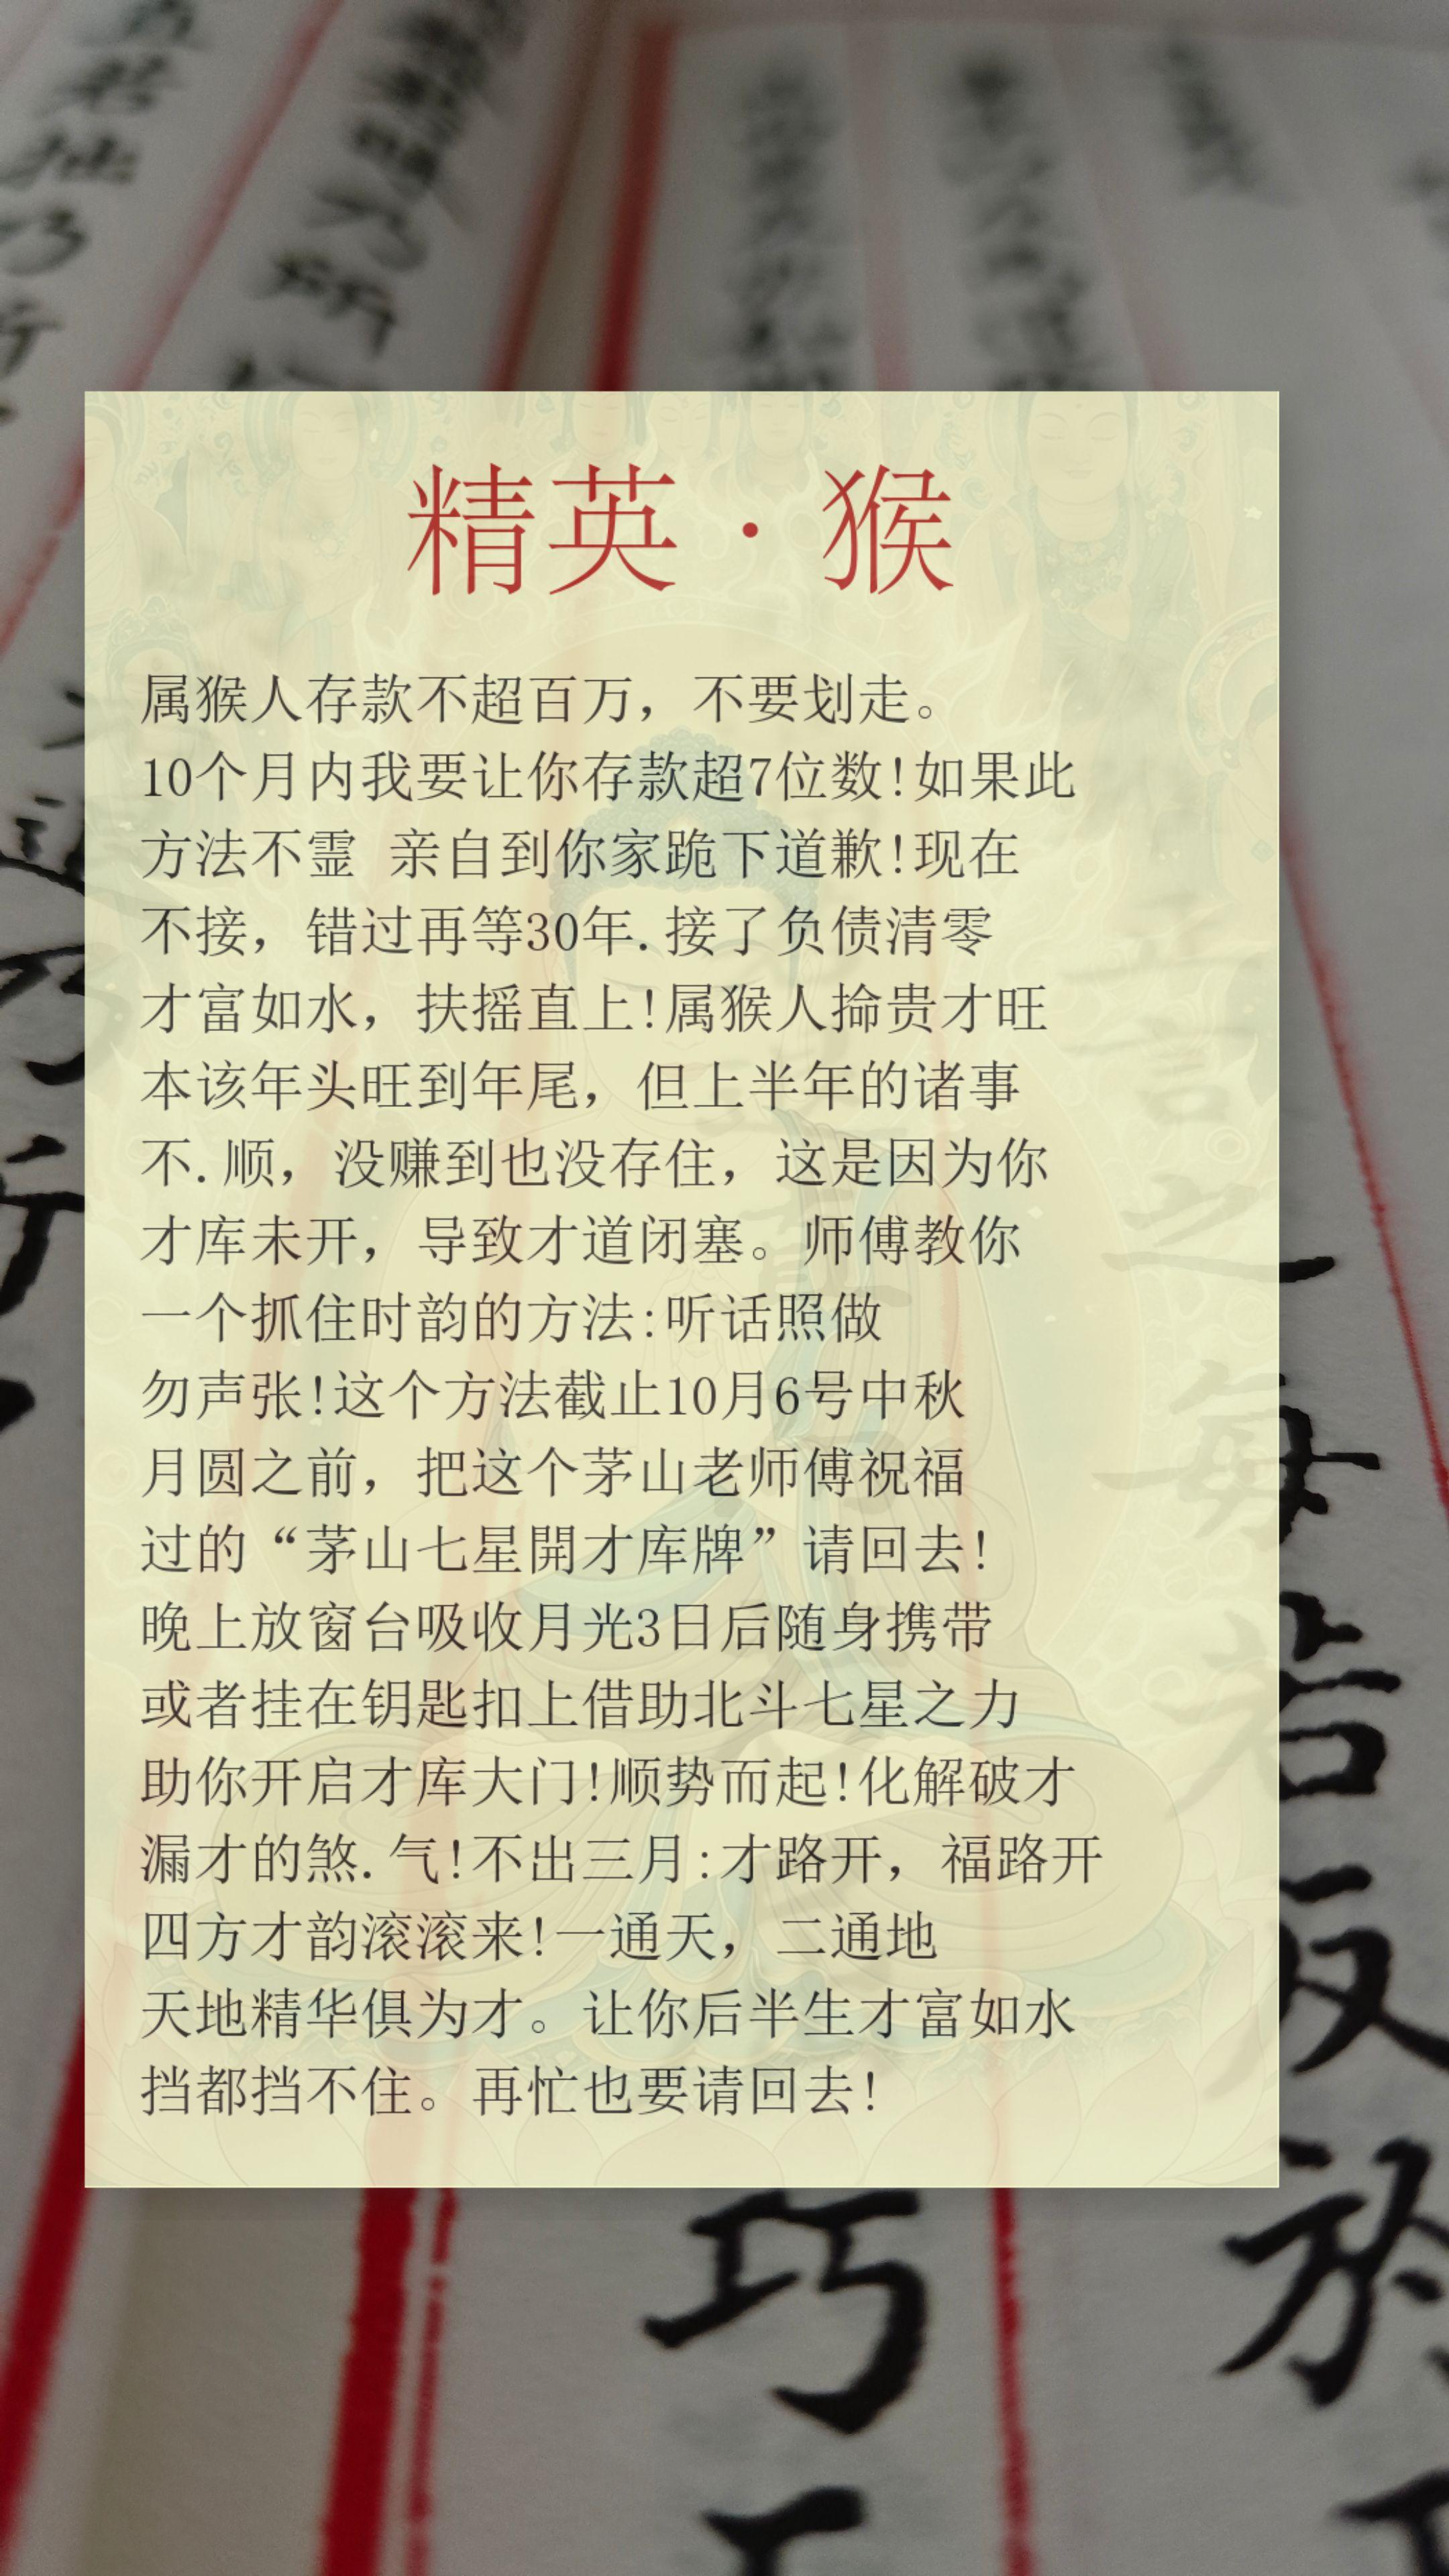 精英·猴
属猴人存款不超百万，不要划走。
10个月内我要让你存款超7位数!如果此
方法不霊 亲自到你家跪下道歉!现在
不接，错过再等30年.接了负债清零
才富如水，扶摇直上!属猴人掵贵才旺
本该年头旺到年尾，但上半年的诸事
不.顺，没赚到也没存住，这是因为你
才库未开，导致才道闭塞。师傅教你
一个抓住时韵的方法:听话照做
勿声张!这个方法截止10月6号中秋
月圆之前，把这个茅山老师傅祝福
过的“茅山七星開才库牌”请回去!
晚上放窗台吸收月光3日后随身携带
或者挂在钥匙扣上借助北斗七星之力
助你开启才库大门!顺势而起!化解破才
漏才的煞.气!不出三月:才路开，福路开
四方才韵滚滚来!一通天，二通地
天地精华俱为才。让你后半生才富如水
挡都挡不住。再忙也要请回去!